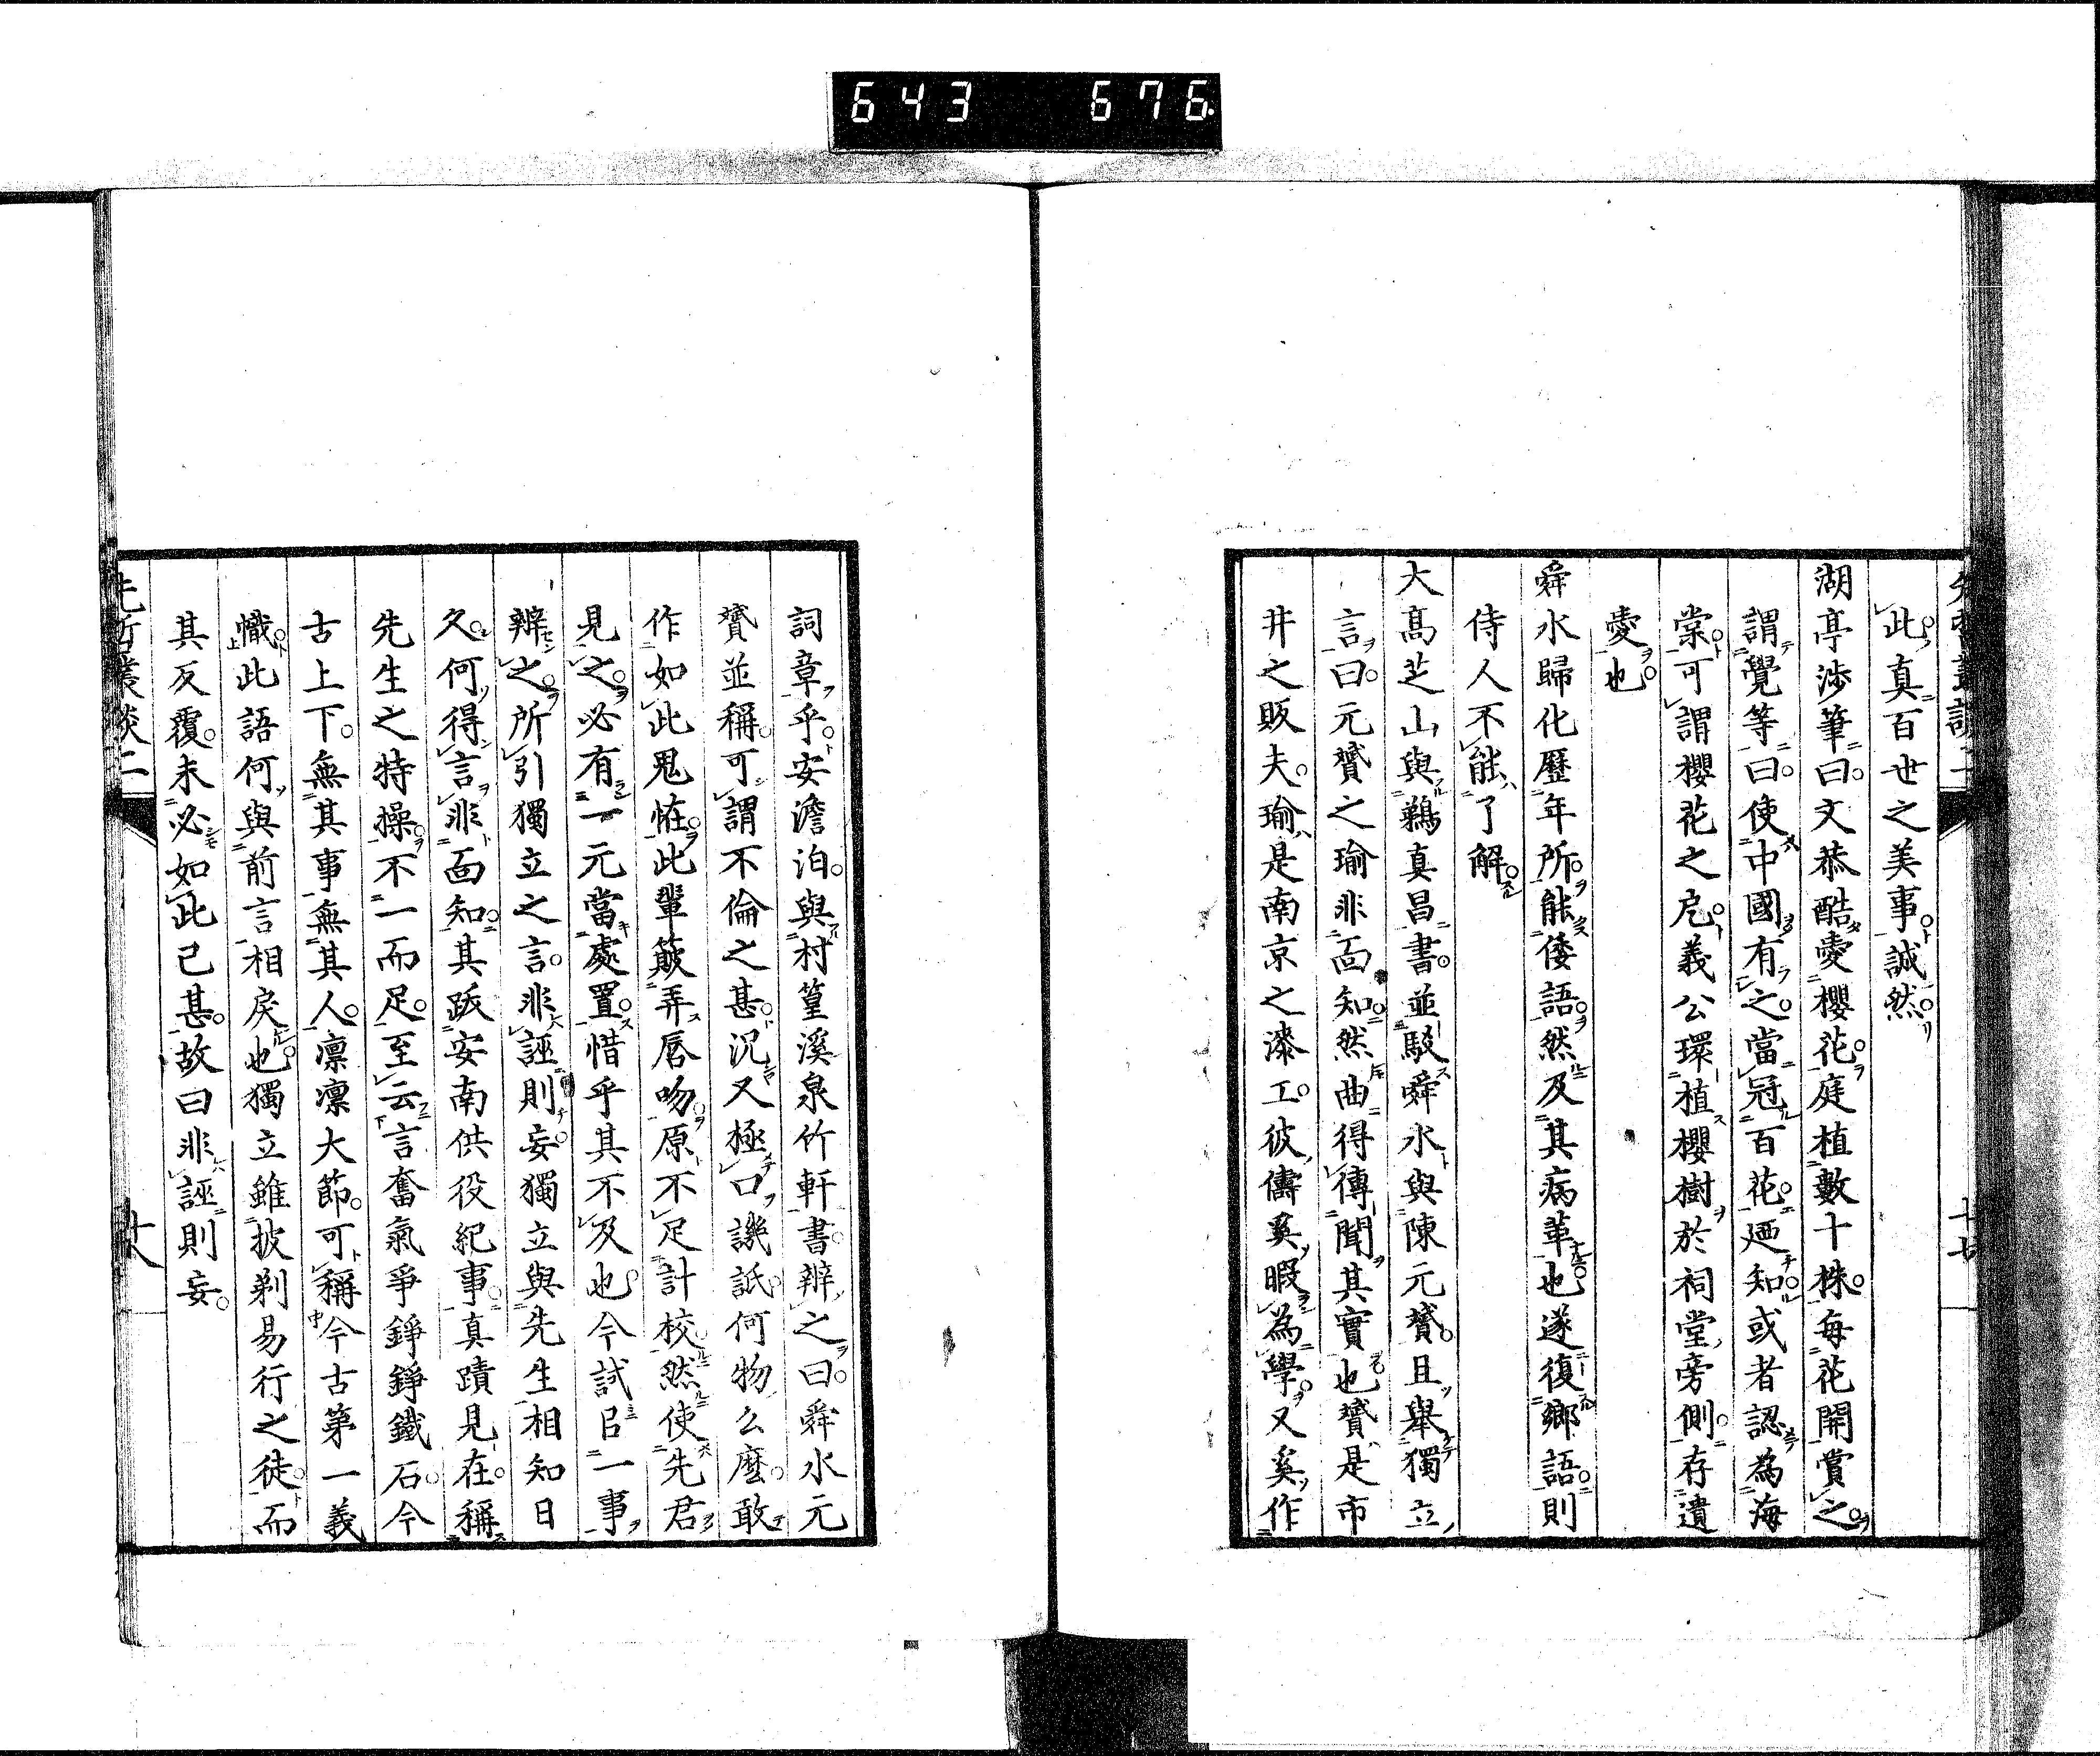 643 676
此真百世之美事誠然
湖亭渉筆曰文恭酷愛櫻花庭植數十株每花開賞之
謂覺等曰使中國有之當冠百花廼知或者認為海
棠可謂櫻花之戹義公環植櫻樹於祠堂旁側存遺
愛也
舜水歸化歷年所能倭語然及其病革也遂復鄉語則
侍人不能了解
大高芝山與鵜真昌書並駁舜水與陳元贇且舉獨立
言曰元贇之瑜非面知然曲得傳聞其實也贇是市
井之販夫瑜是南京之漆工彼儔奚暇為學又奚作
詞章乎安澹泊與村篁溪泉竹軒書辨之曰舜水元
贇並稱可謂不倫之甚況又極口譏詆何物么麽敢
作如此鬼恠此輩簸弄唇吻原不足計校然使先君
見之必有一元當處置惜乎其不及也今試㠯一事
辨之所引獨立之言非誣則妄獨立與先生相知日
久何得言非面知其跋安南供役紀事真蹟見在稱
先生之特操不一而足至云言奮氣爭錚錚鐵石今
古上下無其事無其人凛凛大節可稱今古第一義
幟此語何與前言相戾也獨立雖披剃易行之徒而
其反覆未必如此已甚故曰非誣則妄
先哲叢談二
十八